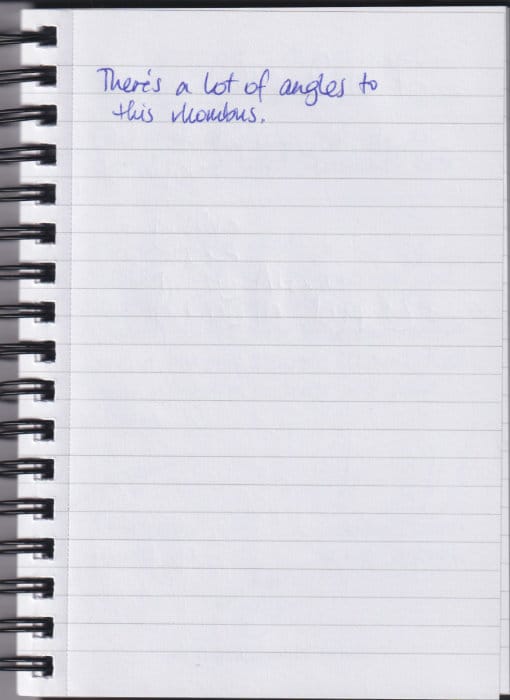 There's a lot of angles to
this rhombus.